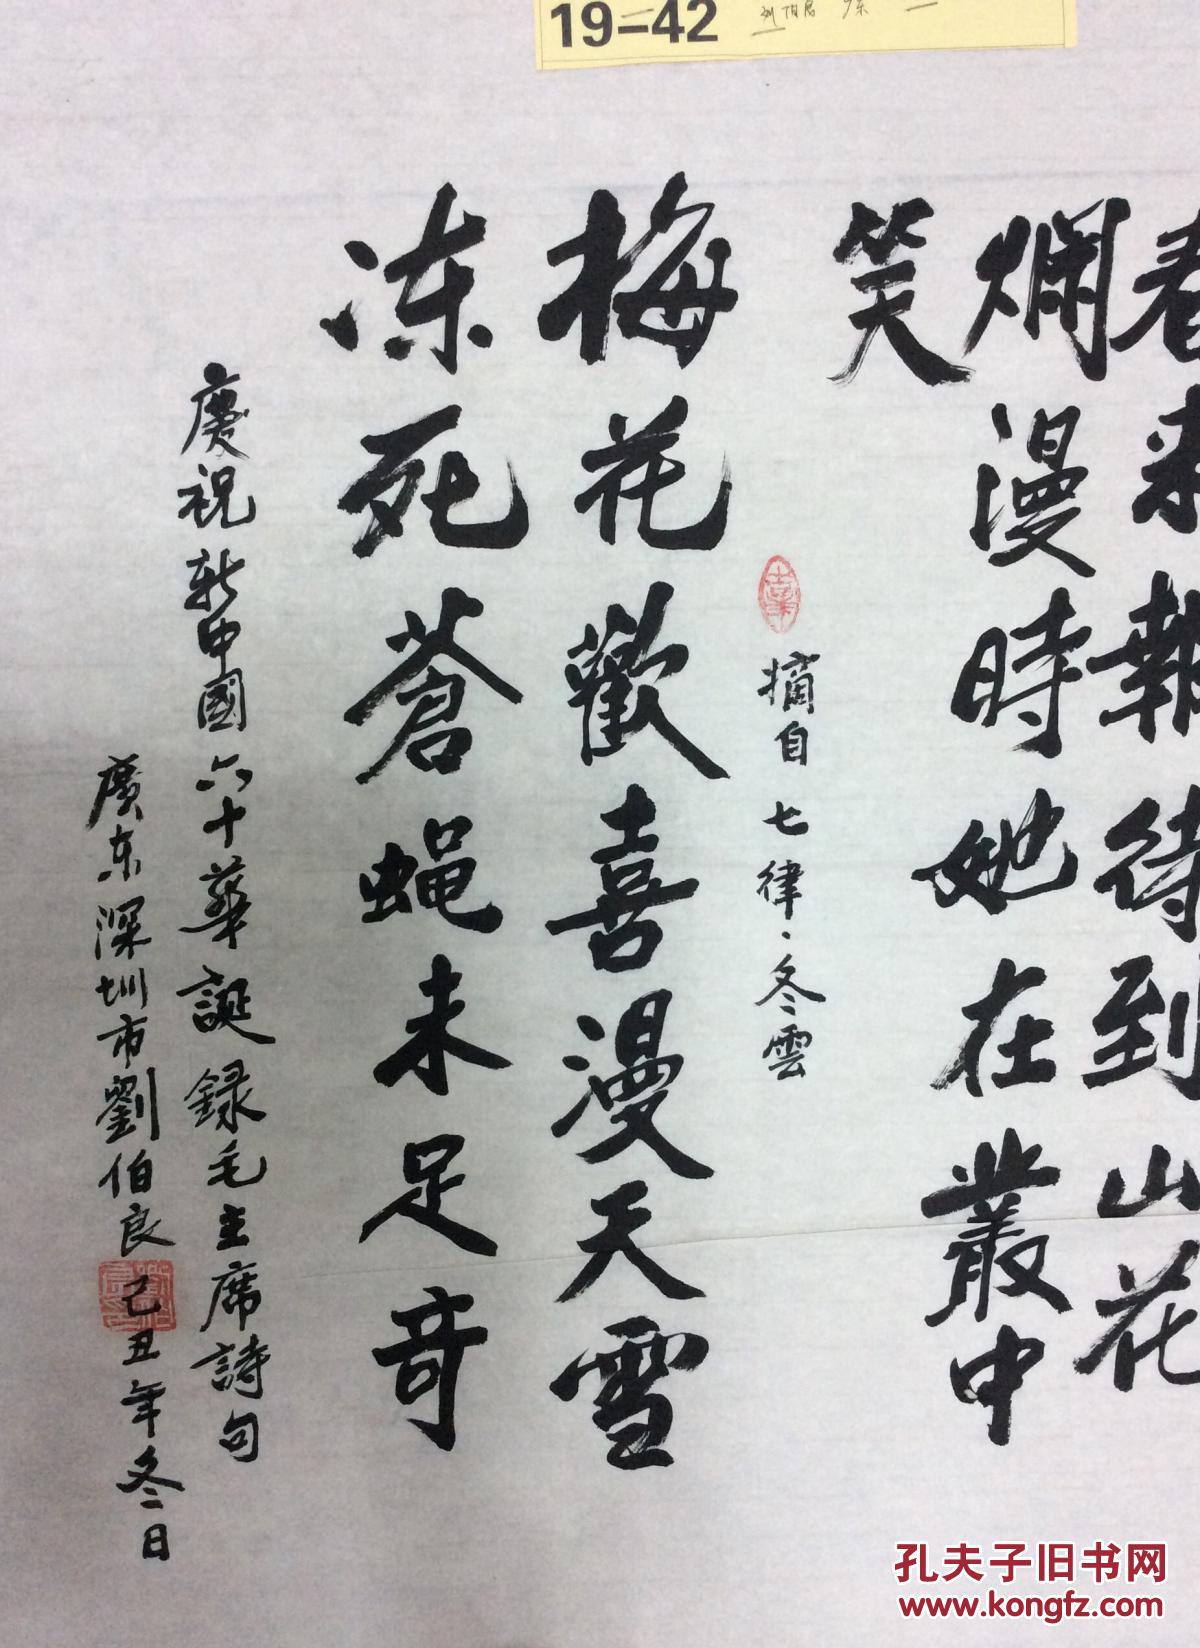 19-42
春来報待到山花
爛漫時她在叢中
笑
摘自七律、冬雲
梅花歡喜漫天雪
冻死蒼蝇未足奇
慶祝新中國六十華誕録毛主席詩句
廣东深圳市劉伯良己丑年冬日
孔夫子旧书网
www.kongfz.com